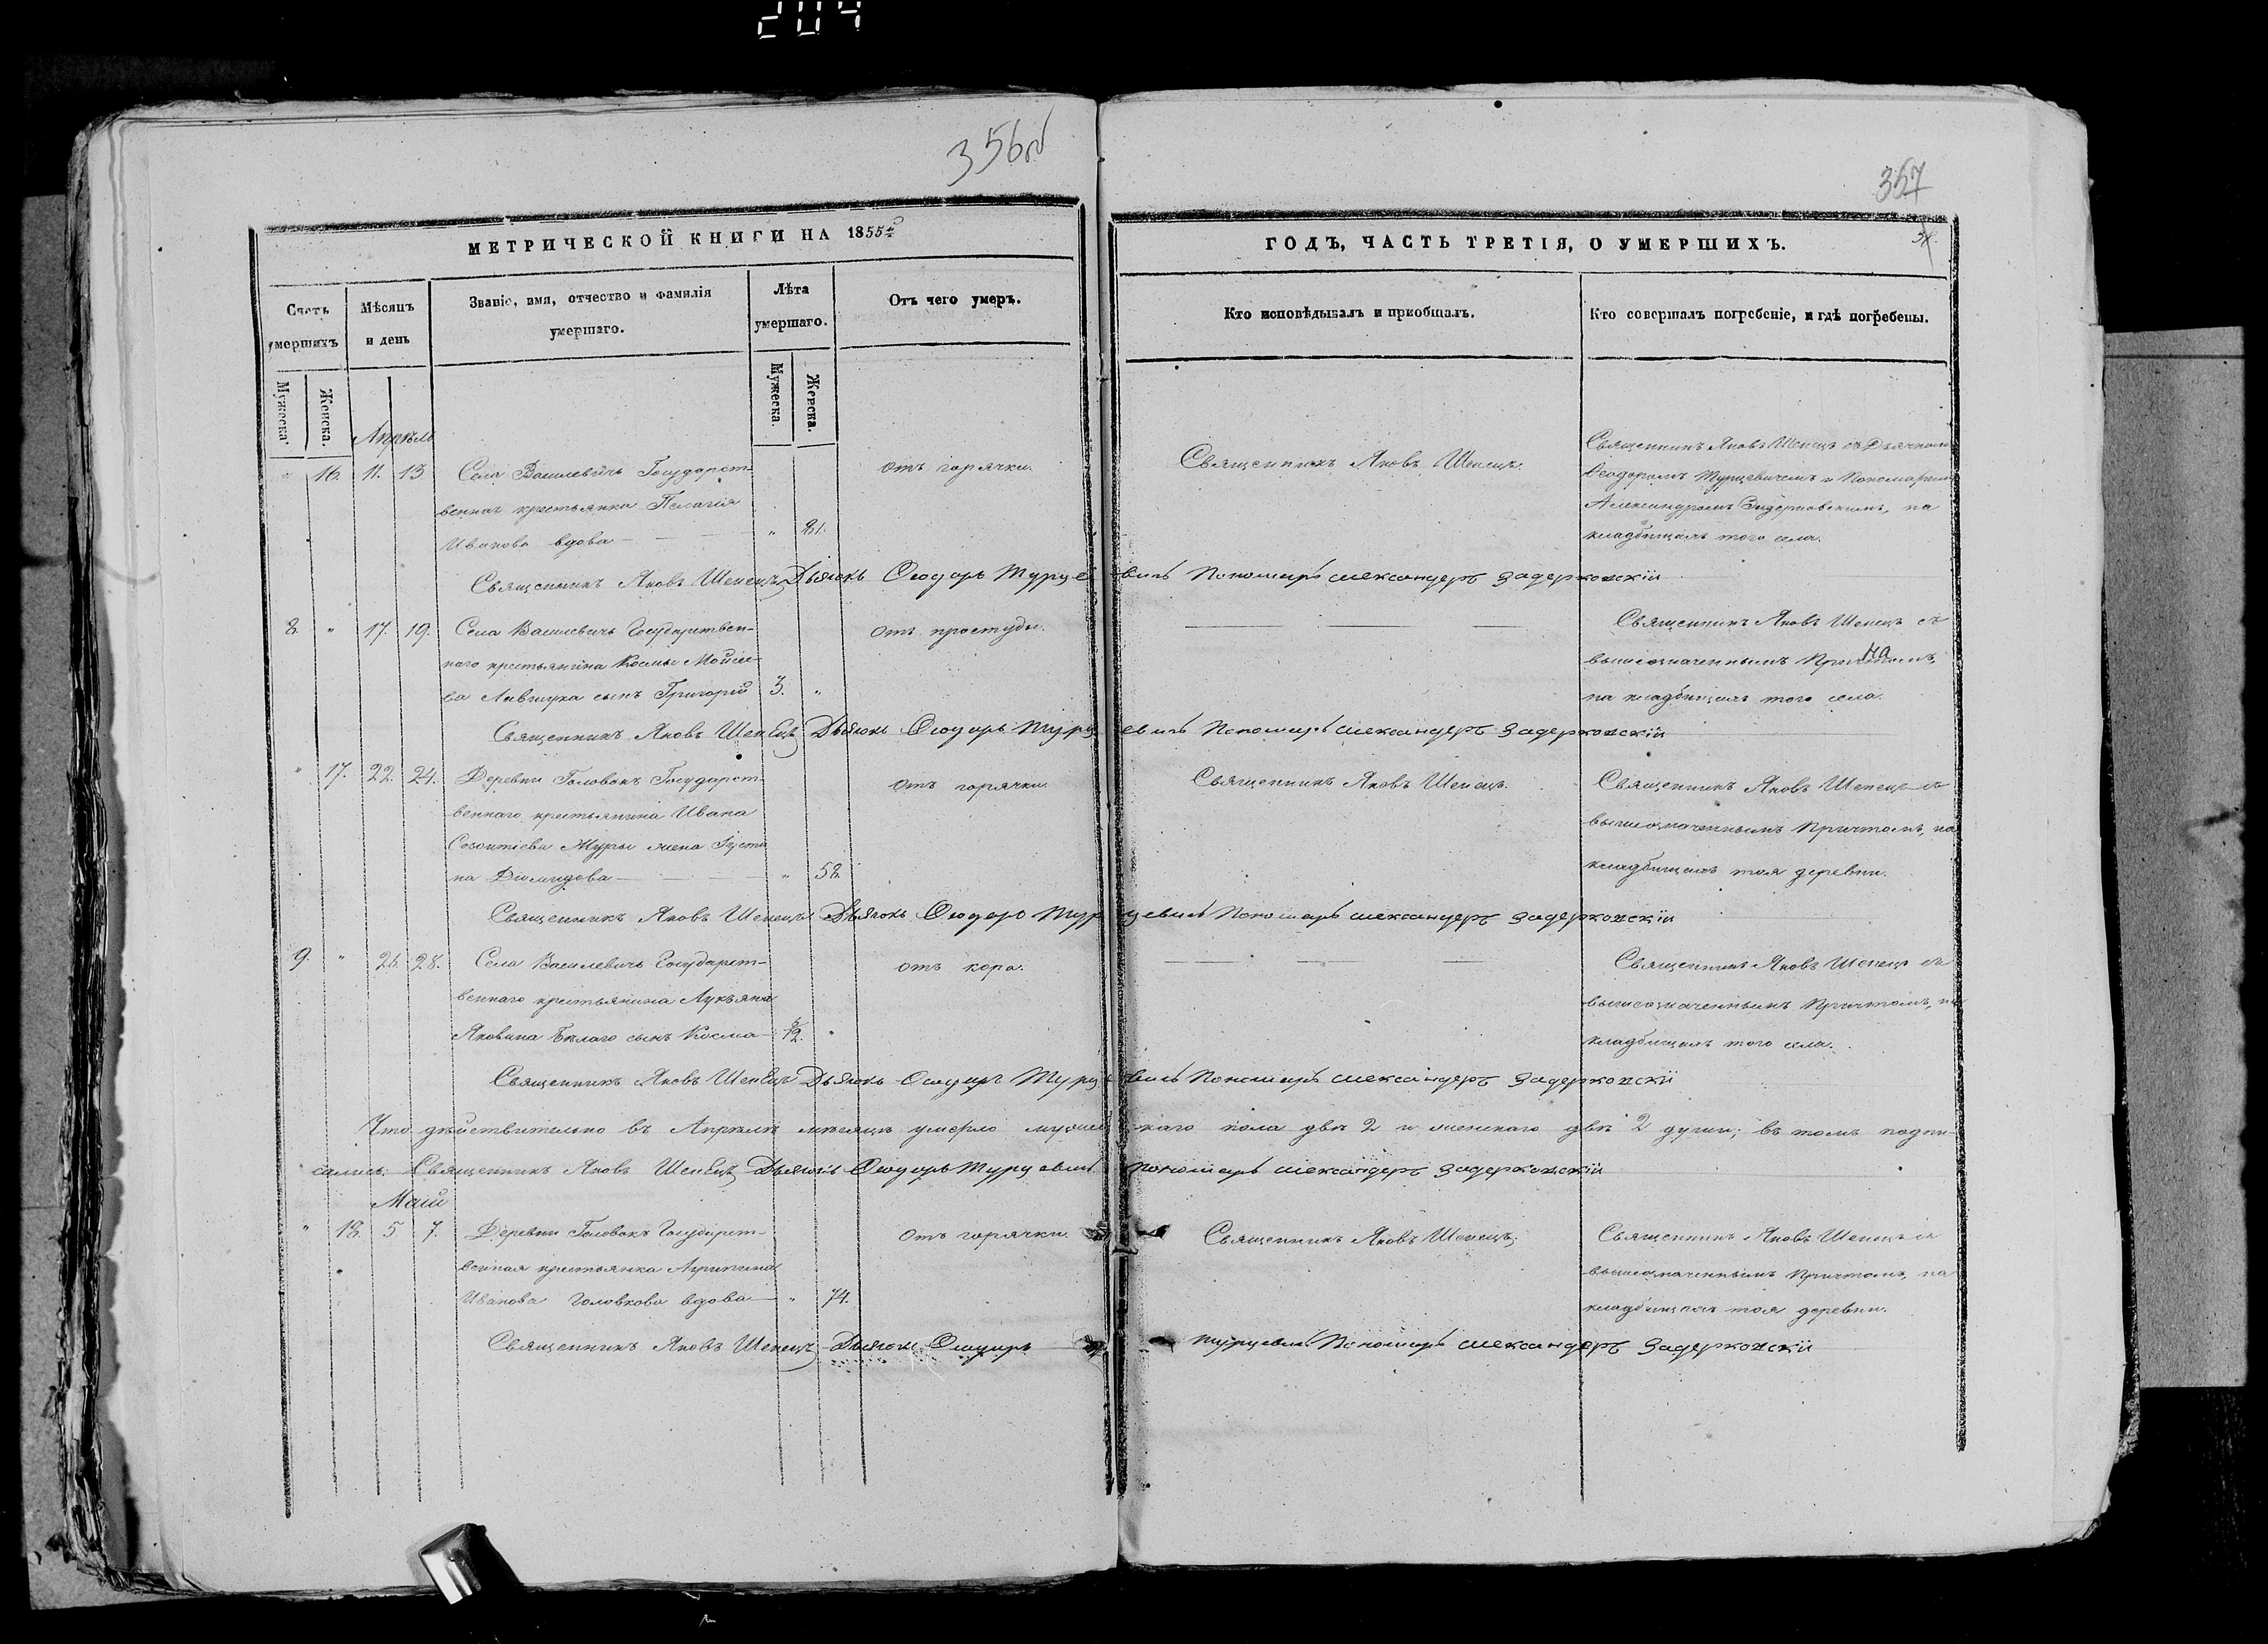 204
356об
357
МЕТРИЧЕСКОЙ КНИГИ НА 1855й
ГОДЪ, ЧАСТЬ ТРЕТІЯ, О УМЕРШИХЪ.
Счетъ умершихъ
Мѣсяцъ и день
Званіе, имя, отчество и фамилія умершаго.
Лѣта умершаго.
Отъ чего умеръ.
Кто исповѣдывалъ и пріобщалъ.
Кто совершалъ погребеніе, и гдѣ погребены.
Мужеска.
Женска.
Мужеска.
Женска.
Апрѣль
" 16. 11. 13. Села Василевичь Государст-
венная крестьянка Пелагія
Иванова вдова " 81.
отъ горячки.
Священникъ Яковъ Шепецъ.
Священникъ Яковъ Шепецъ съ Дьячкомъ
Ѳеодоромъ Турцевичемъ и Пономаремъ
Александромъ Задерковскимъ, на
кладбищахъ того села.
Священникъ Яковъ Шепецъ Дьячокъ Ѳеодоръ Турцевичь Пономарь Александеръ Задерковскій
8. " 17. 19. Села Василевичь Государствен-
наго крестьянина Космы Мойсее-
ва сынъ Григорій 3. "
отъ простуды.
Священникъ Яковъ Шепецъ съ
вышеозначеннымъ Причтомъ,
на
на кладбищахъ того села.
Священникъ Яковъ Шепецъ Дьячокъ Ѳеодоръ Турцевичь Пономарь Александеръ Задерковскій
" 17. 22. 24. Деревни Головокъ Государст-
веннаго крестьянина Ивана
Созонтіева Журы жена Густи
на Діомидова " 58.
отъ горячки.
Священникъ Яковъ Шепецъ.
Священникъ Яковъ Шепецъ съ
вышеозначеннымъ Причтомъ, на
кладбищахъ тоя деревни.
Священникъ Яковъ Шепецъ Дьячокъ Ѳеодоръ Турцевичь Пономарь Александеръ Задерковскій
9. " 26. 28. Села Василевичь Государст-
веннаго крестьянина Лукьяна
Яковина Бѣлаго сынъ Косма ½. "
отъ кора.
Священникъ Яковъ Шепецъ съ
вышеозначеннымъ Причтомъ, на
кладбищахъ того села.
Священникъ Яковъ Шепецъ Дьячокъ Ѳеодоръ Турцевичь Пономарь Александеръ Задерковскій
Что дѣйствительно въ Апрѣлѣ мѣсяцѣ умерло мужескаго пола двѣ 2 и женскаго двѣ 2 души; въ томъ подпи-
сались: Священникъ Яковъ Шепецъ Дьячокъ Ѳеодоръ Турцевичь Пономарь Александеръ Задерковскій
Маій
" 18. 5 7. Деревни Головокъ Государст-
венная крестьянка Агрипина
Иванова Головкова вдова " 74.
отъ горячки.
Священникъ Яковъ Шепецъ.
Священникъ Яковъ Шепецъ съ
вышеозначеннымъ Причтомъ, на
кладбищахъ тоя деревни.
Священникъ Яковъ Шепецъ Дьячокъ Ѳеодоръ Турцевичь Пономарь Александеръ Задерковскій